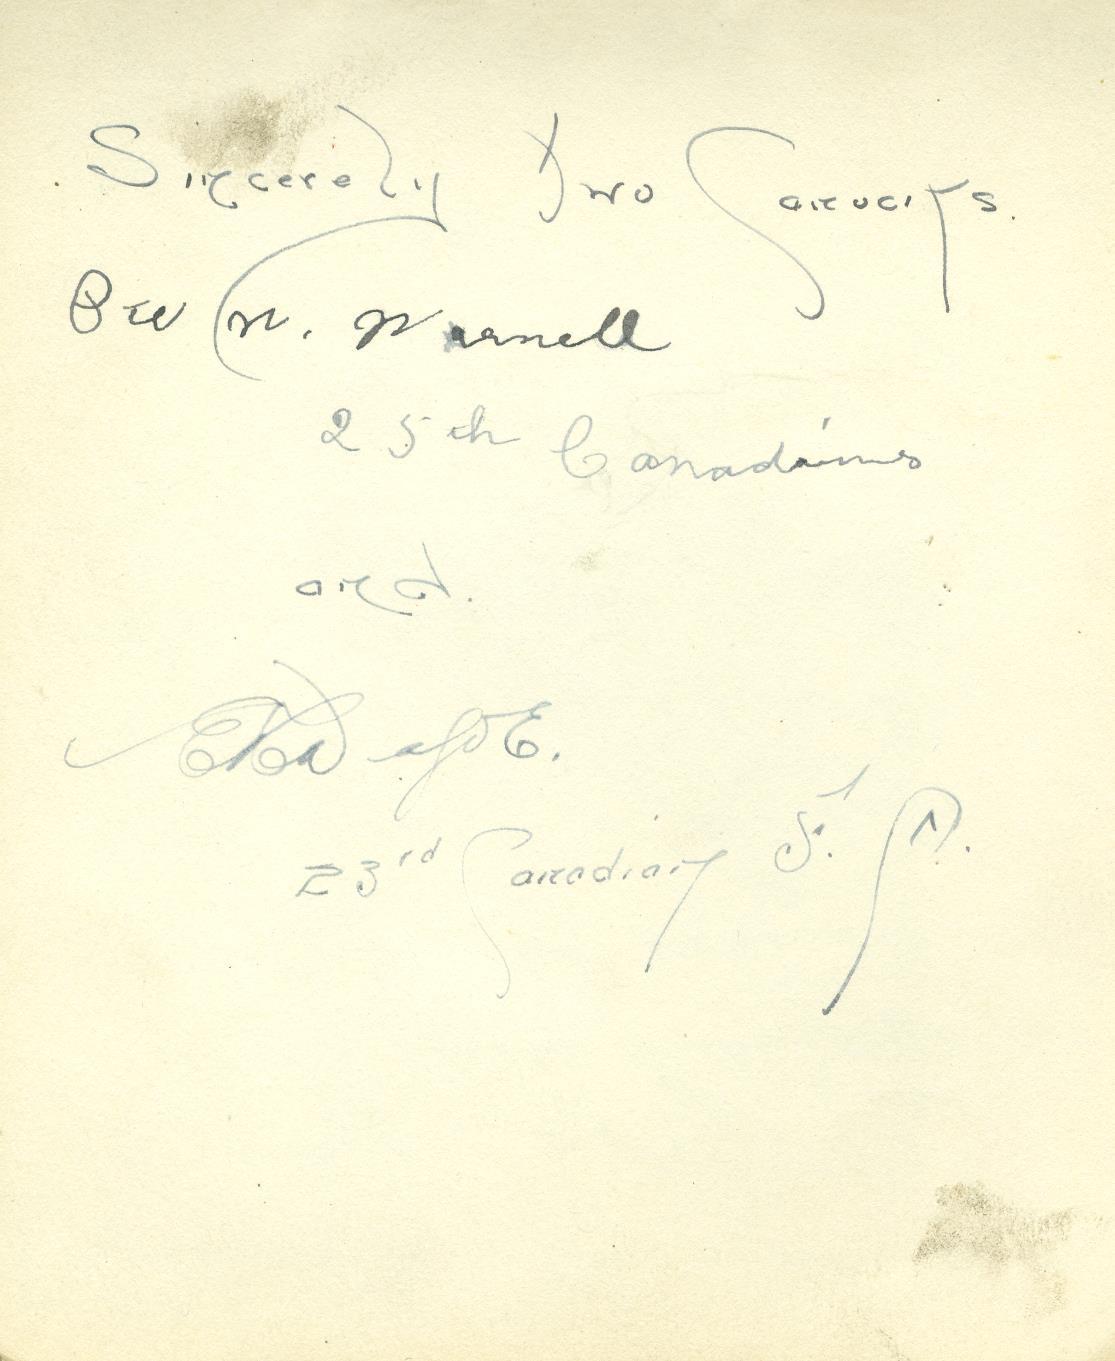 Sincerely Two Canucks.
Pte W. Warnell
25th Canadians
and.
23rd Canadian